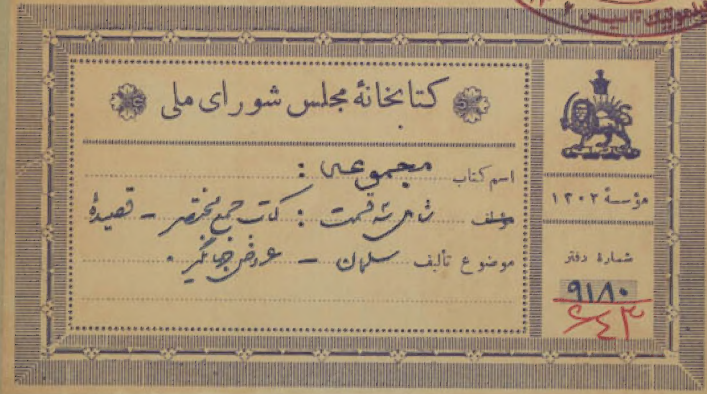 کتابخانهٔ مجلس شورای ملی
اسم کتاب مجموعه :
مؤلف شامل سه قسمت : کتاب جمع مختصر – قصیدهٔ
موضوع تألیف سلمان – عروض جهانگیر .
مؤسسهٔ ۱۳۰۲
شمارهٔ دفتر
۹۱۸۰